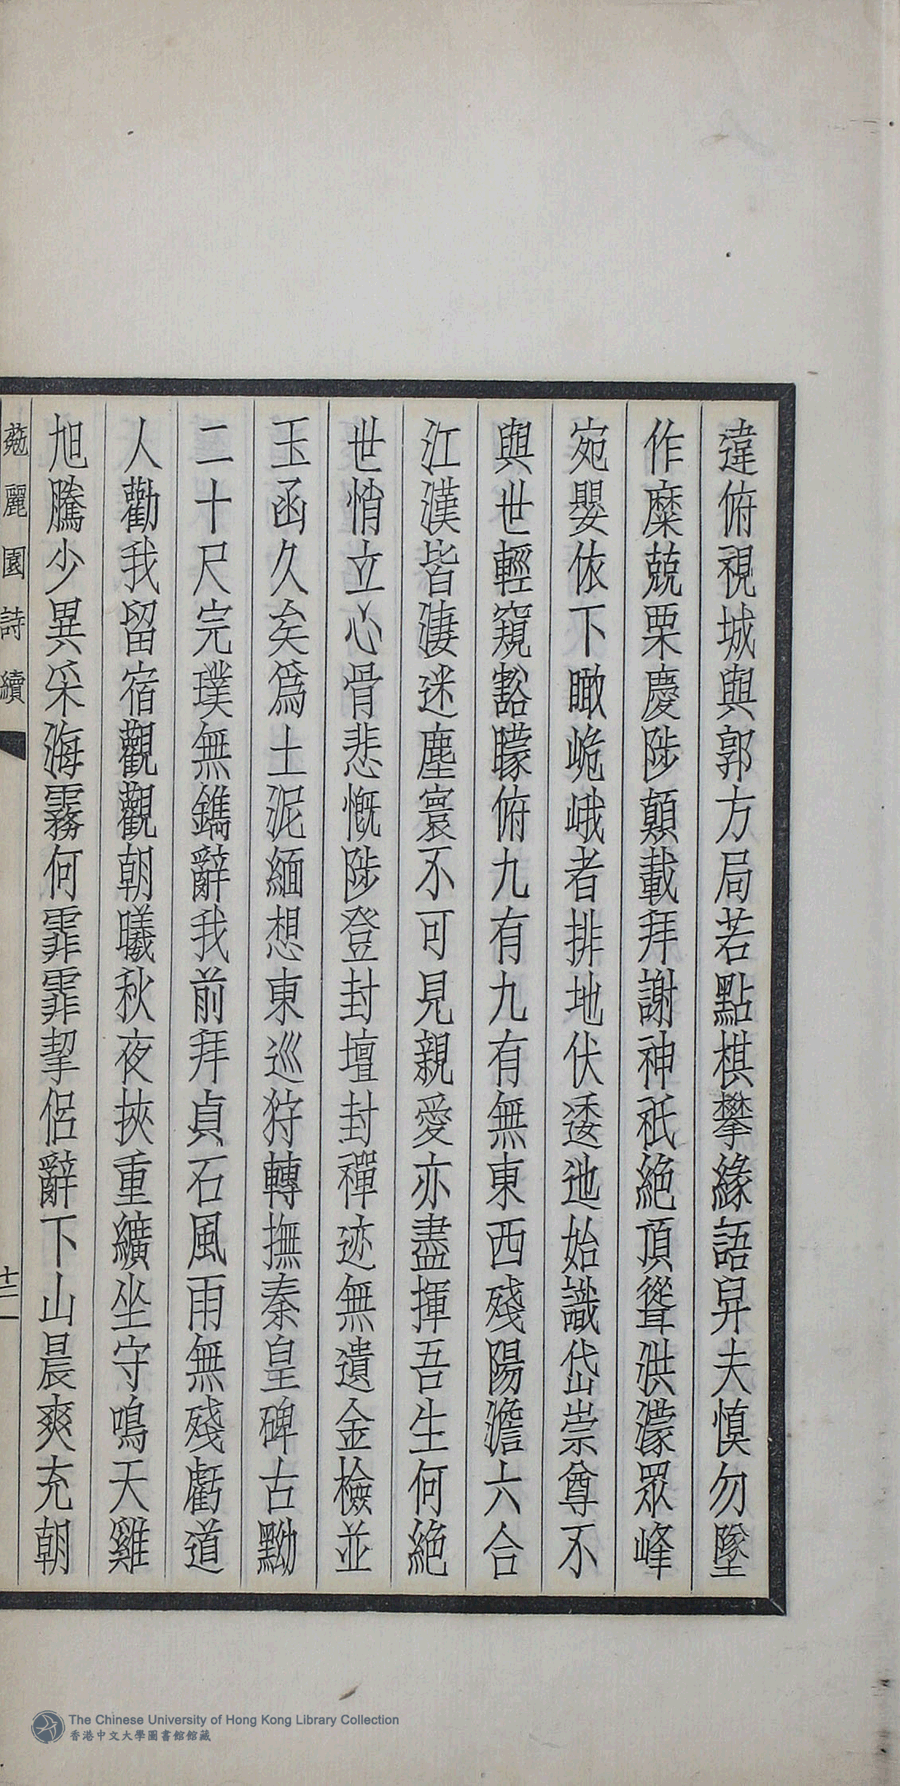 違俯視城與郭方局若點棋攀緣語舁夫慎勿墜
作糜兢栗慶陟顛載拜謝神祇絕頂聳洪濛眾峰
宛嬰依下瞰峗峨者排地伏逶迆始識岱崇尊不
與世輕窺豁矇俯九有九有無東西殘陽澹六合
江漢皆淒迷塵寰不可見親愛亦盡揮吾生何絕
世悄立心骨悲慨陟登封壇封禪迹無遺金檢並
玉函久矣為土泥緬想東巡狩轉撫秦皇碑古黝
二十尺完璞無鐫辭我前拜貞石風雨無殘虧道
人勸我留宿觀觀朝曦秋夜挾重纊坐守鳴天雞
旭騰少異采海霧何霏霏挈侶辭下山晨爽充朝
菀麗園詩續
十二
The Chinese University of Hong Kong Library Collection
香港中文大學圖書館館藏